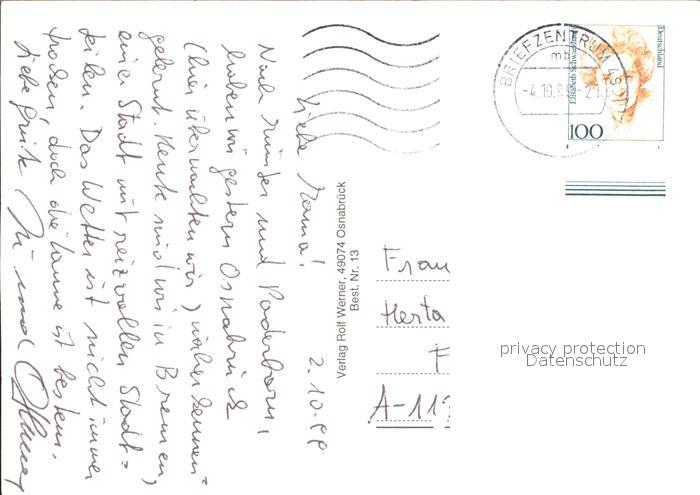 2.10.99
Liebe Mama!
Nach Münster und Paderborn,
haben wir gestern Osnabrück
(hier übernachten wir) näher kennen=
gelernt. Heute sind wir in Bremen,
einer Stadt mit reizvollen Stadt=
teilen. Das Wetter ist nicht immer
trocken, doch die Laune ist bestens.
Liebe Grüße
und
Verlag Rolf Werner, 49074 Osnabrück
Best. Nr. 13
BRIEFZENTRUM 49
mb
-4.10.99-21
Deutschland
100
Frau
Herta
F
A-113
privacy protection
Datenschutz